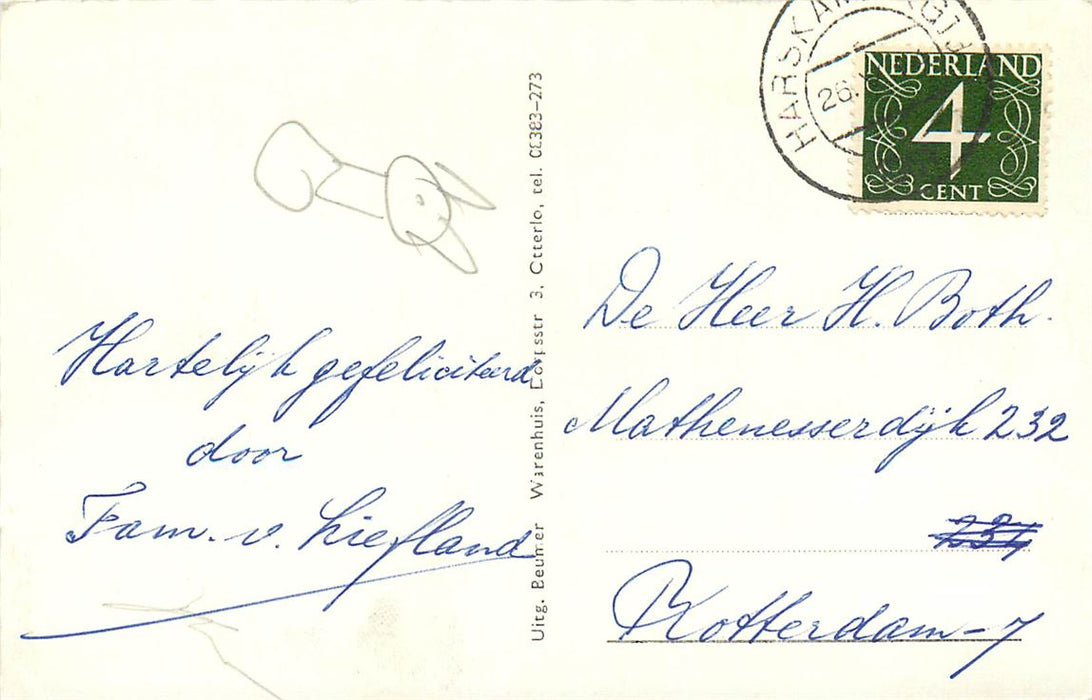 Hartelijk gefeliciteerd
door
Fam. v. Liefland
Uitg. Beumer Warenhuis, Dorpsstr 3, Otterlo, tel. 08383-273
HARSKAMP
26.
NEDERLAND
4
CENT
De Heer H. Both.
Mathenesserdijk 232
234
Rotterdam-7